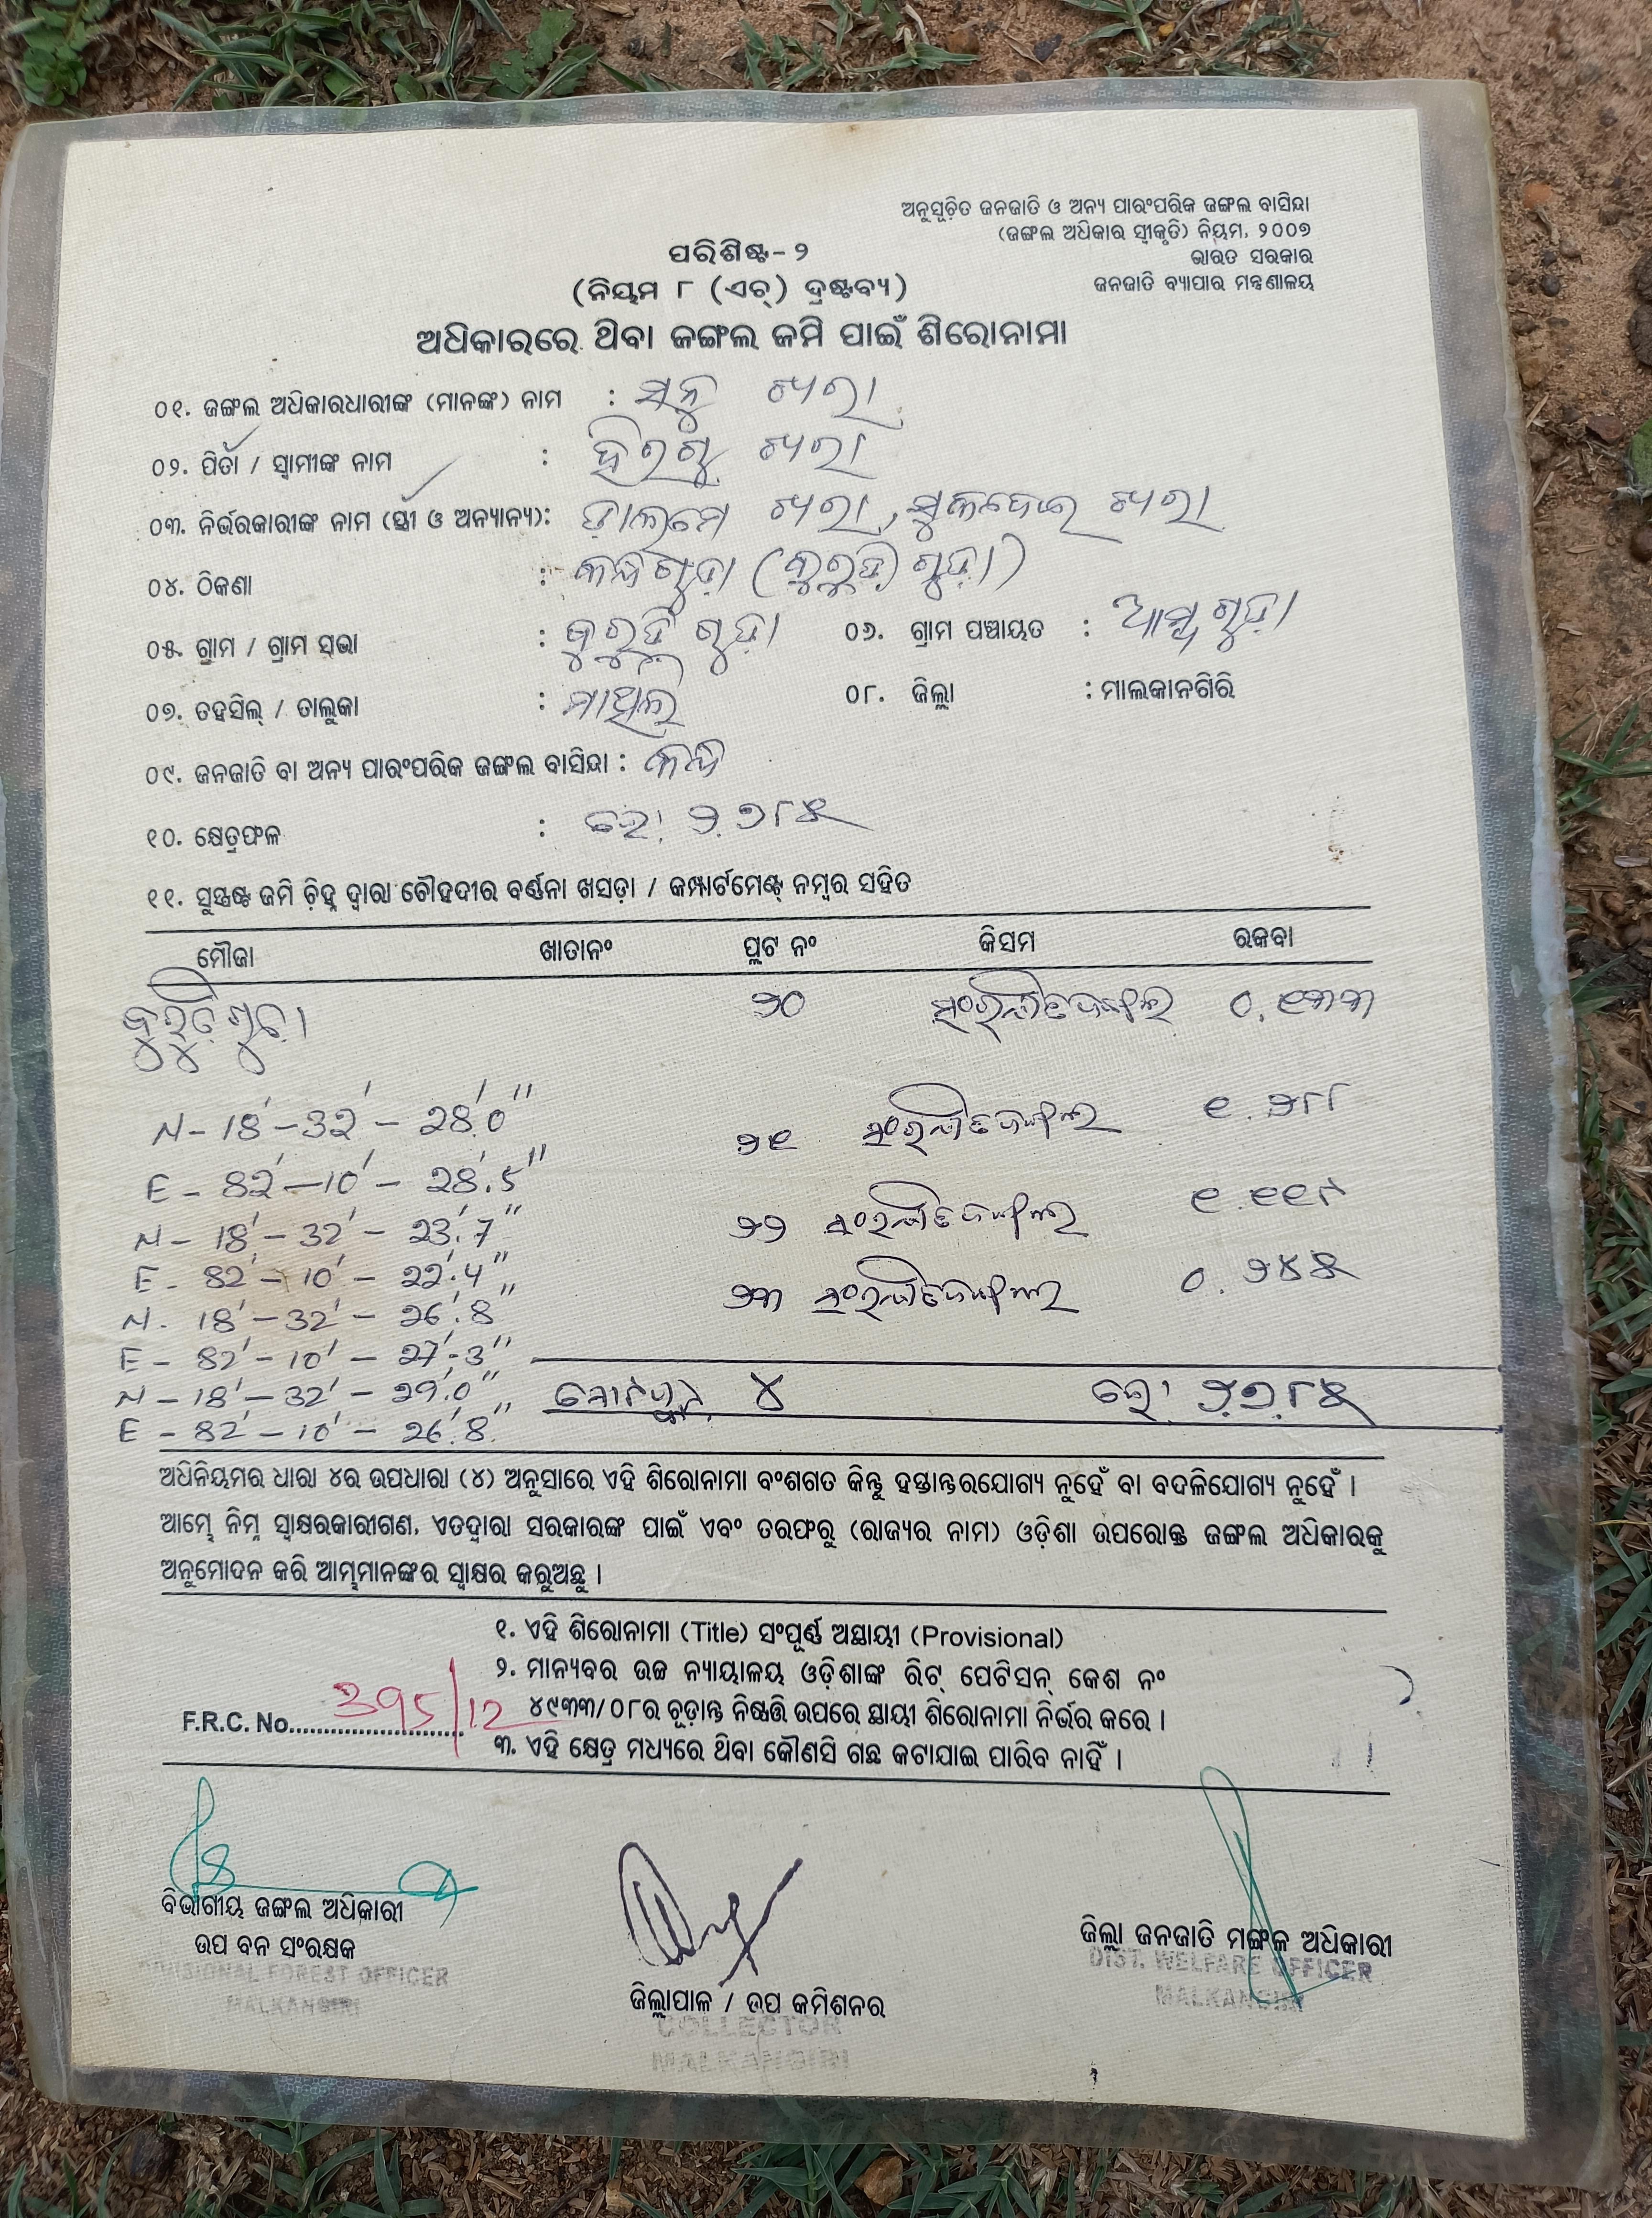 ଅନୁସୂଚିତ ଜନଜାତି ଓ ଅନ୍ୟ ପାରଂପରିକ ଜଙ୍ଗଲ ବାସିନ୍ଦା
(ଜଙ୍ଗଲ ଅଧିକାର ସ୍ୱୀକୃତି) ନିୟମ, ୨୦୦୭
ଭାରତ ସରକାର
ଜନଜାତି ବ୍ୟାପାର ମନ୍ତ୍ରଣାଳୟ
ପରିଶିଷ୍ଟ-୨
(ନିୟମ ୮ (ଏଚ୍) ଦ୍ରଷ୍ଟବ୍ୟ)
ଅଧିକାରରେ ଥିବା ଜଙ୍ଗଲ ଜମି ପାଇଁ ଶିରୋନାମା
୦୧. ଜଙ୍ଗଲ ଅଧିକାରଧାରୀଙ୍କ (ମାନଙ୍କ) ନାମ : ସନୁ ଖରା
୦୨. ପିତା / ସ୍ୱାମୀଙ୍କ ନାମ : ଖରା
୦୩. ନିର୍ଭରକାରୀଙ୍କ ନାମ (ସ୍ତ୍ରୀ ଓ ଅନ୍ୟାନ୍ୟ): ଡାଲମେ ଖରା, ସୁକଦେଇ ଖରା
୦୪. ଠିକଣା : କନ୍ଧଗୁଡ଼ା
୦୫. ଗ୍ରାମ / ଗ୍ରାମ ସଭା : ୦୬. ଗ୍ରାମ ପଞ୍ଚାୟତ : ଆମ୍ବଗୁଡ଼ା
୦୭. ତହସିଲ୍ / ତାଲୁକା : ମାଥିଲି ୦୮. ଜିଲ୍ଲା : ମାଲକାନଗିରି
୦୯. ଜନଜାତି ବା ଅନ୍ୟ ପାରଂପରିକ ଜଙ୍ଗଲ ବାସିନ୍ଦା : କନ୍ଧ
୧୦. କ୍ଷେତ୍ରଫଳ :
୧୧. ସୁସ୍ପଷ୍ଟ ଜମି ଚିହ୍ନ ଦ୍ୱାରା ଚୌହଦୀର ବର୍ଣ୍ଣନା ଖସଡ଼ା / କମ୍ପାର୍ଟମେଣ୍ଟ୍ ନମ୍ବର ସହିତ
ମୌଜା ଖାତାନଂ ପ୍ଲଟ ନଂ କିସମ ରକବା
୨୦ ୦.୧୩୩
N- 18'-32'- 28'.0"
୨୧ ୧.୨୮୮
E - 82'-10'- 28'.5"
N - 18'-32'- 23'.7"
୨୨ ୧.୧୧୯
E - 82'-10'- 22'.4"
୨୩ ୦.୨୪୫
N - 18'-32'- 26'.8"
E - 82'-10'- 27'-3"
N - 18'-32'- 29'.0" ୪
E - 82'-10'- 26'.8"
ଅଧିନିୟମର ଧାରା ୪ର ଉପଧାରା (୪) ଅନୁସାରେ ଏହି ଶିରୋନାମା ବଂଶଗତ କିନ୍ତୁ ହସ୍ତାନ୍ତରଯୋଗ୍ୟ ନୁହେଁ ବା ବଦଳିଯୋଗ୍ୟ ନୁହେଁ ।
ଆମ୍ଭେ ନିମ୍ନ ସ୍ୱାକ୍ଷରକାରୀଗଣ, ଏତଦ୍ୱାରା ସରକାରଙ୍କ ପାଇଁ ଏବଂ ତରଫରୁ (ରାଜ୍ୟର ନାମ) ଓଡ଼ିଶା ଉପରୋକ୍ତ ଜଙ୍ଗଲ ଅଧିକାରକୁ
ଅନୁମୋଦନ କରି ଆମ୍ଭମାନଙ୍କର ସ୍ୱାକ୍ଷର କରୁଅଛୁ ।
୧. ଏହି ଶିରୋନାମା (Title) ସଂପୂର୍ଣ୍ଣ ଅସ୍ଥାୟୀ (Provisional)
୨. ମାନ୍ୟବର ଉଚ୍ଚ ନ୍ୟାୟାଳୟ ଓଡ଼ିଶାଙ୍କ ରିଟ୍ ପେଟିସନ୍ କେଶ ନଂ
୪୯୩୩/୦୮ର ଚୂଡ଼ାନ୍ତ ନିଷ୍ପତ୍ତି ଉପରେ ସ୍ଥାୟୀ ଶିରୋନାମା ନିର୍ଭର କରେ ।
F.R.C. No. 395/12
୩. ଏହି କ୍ଷେତ୍ର ମଧ୍ୟରେ ଥିବା କୌଣସି ଗଛ କଟାଯାଇ ପାରିବ ନାହିଁ ।
ବିଭାଗୀୟ ଜଙ୍ଗଲ ଅଧିକାରୀ
ଉପ ବନ ସଂରକ୍ଷକ
DIVISIONAL FOREST OFFICER
MALKANGIRI
ଜିଲ୍ଲାପାଳ / ଉପ କମିଶନର
COLLECTOR
MALKANGIRI
ଜିଲ୍ଲା ଜନଜାତି ମଙ୍ଗଳ ଅଧିକାରୀ
DIST. WELFARE OFFICER
MALKANGIRI